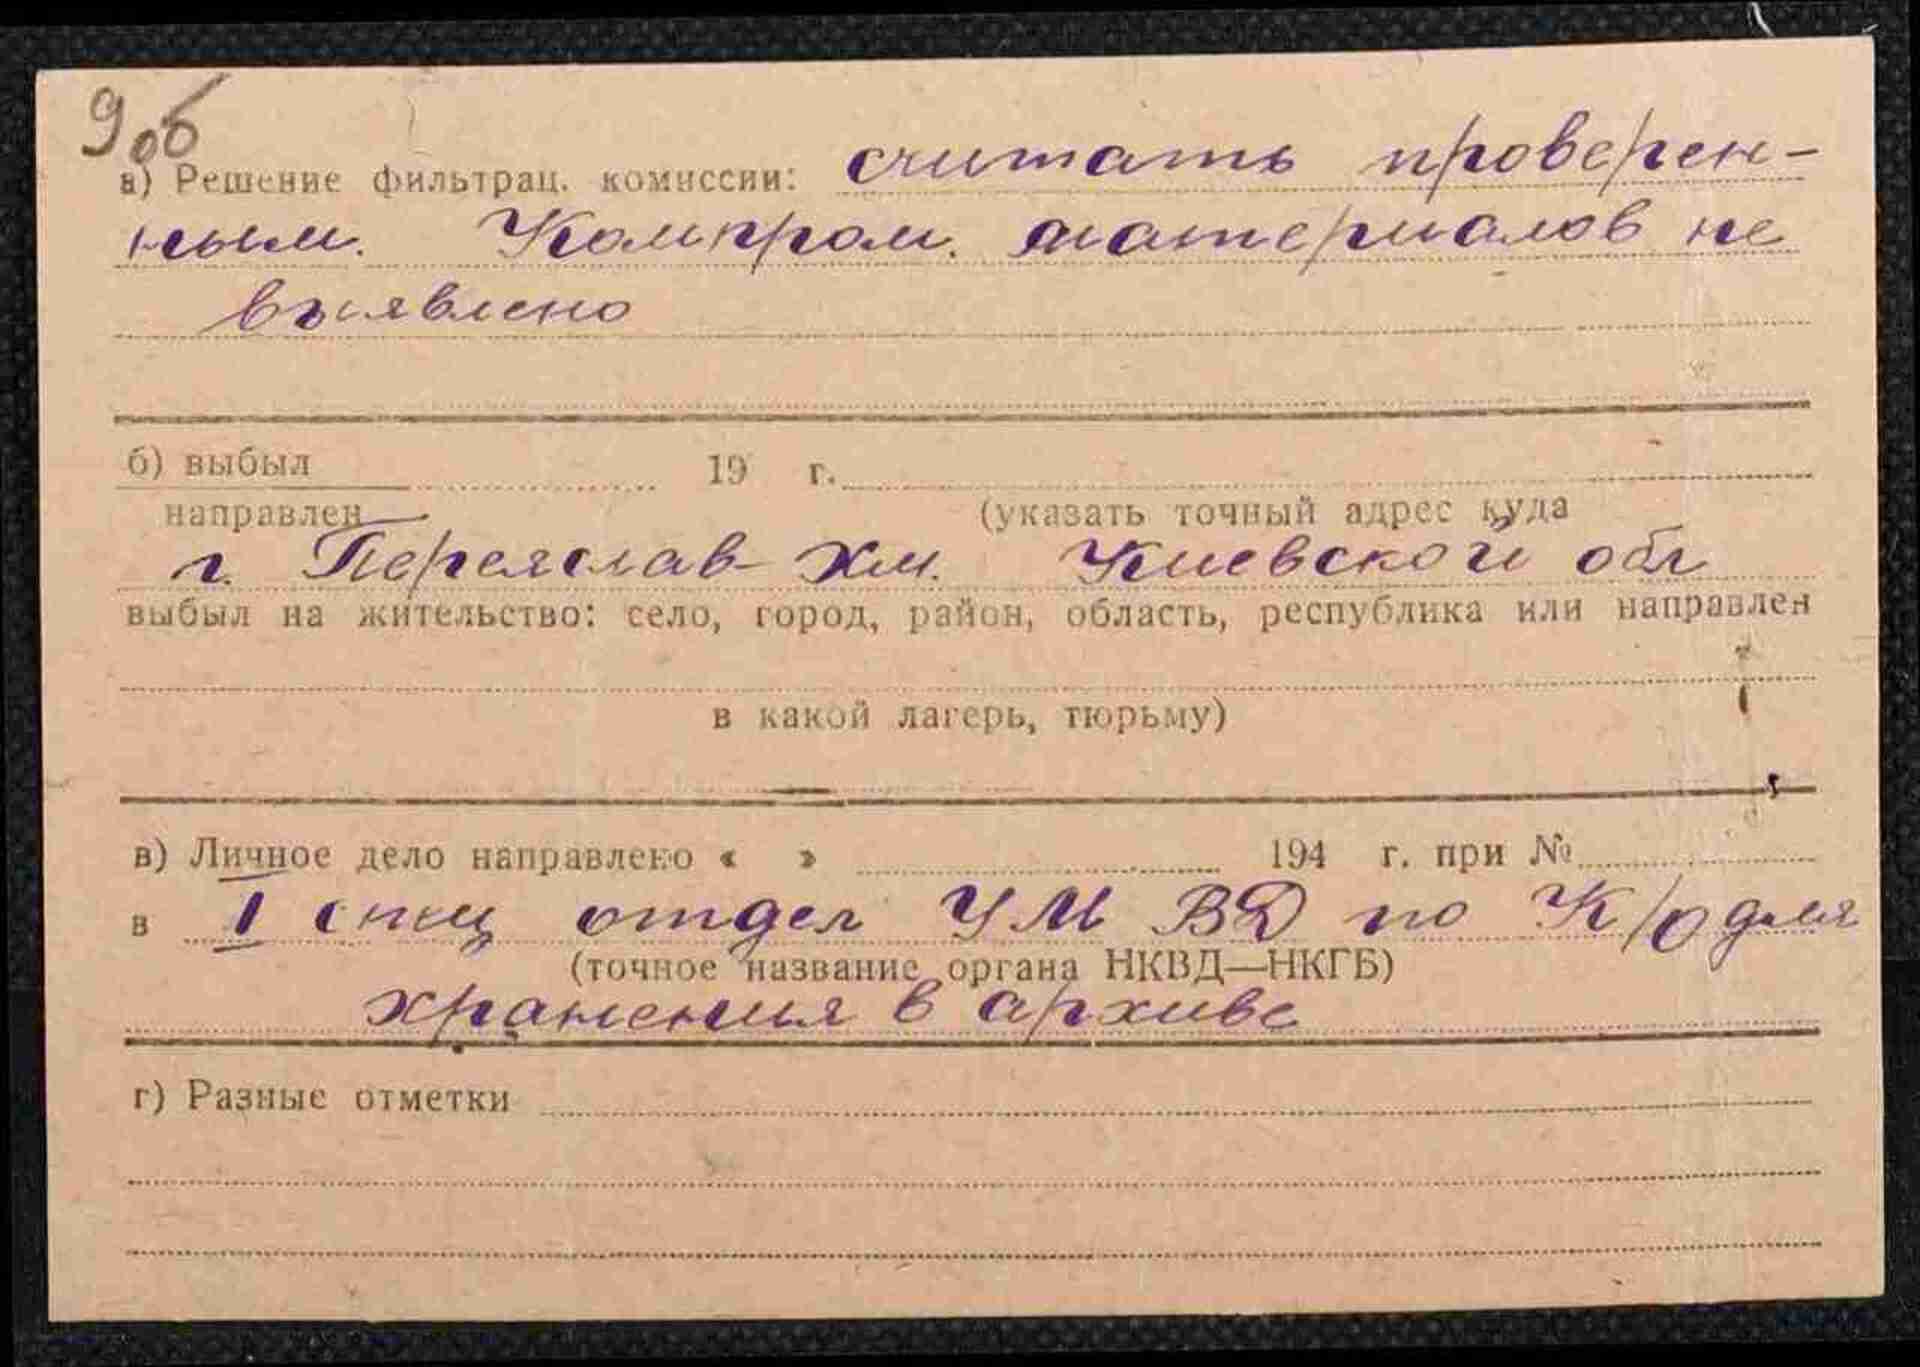 9об
а) Решение фильтрац. комиссии: считать проверен-
ным. Компром. материалов не
выявлено
б) выбыл 19 г.
направлен (указать точный адрес куда
г. Переяслав-Хм. Киевской обл
выбыл на жительство: село, город, район, область, республика или направлен
в какой лагерь, тюрьму)
в) Личное дело направлено « » 194 г. при №
в I спец отдел УМВД по К/о для
(точное название органа НКВД—НКГБ)
хранения в архиве
г) Разные отметки